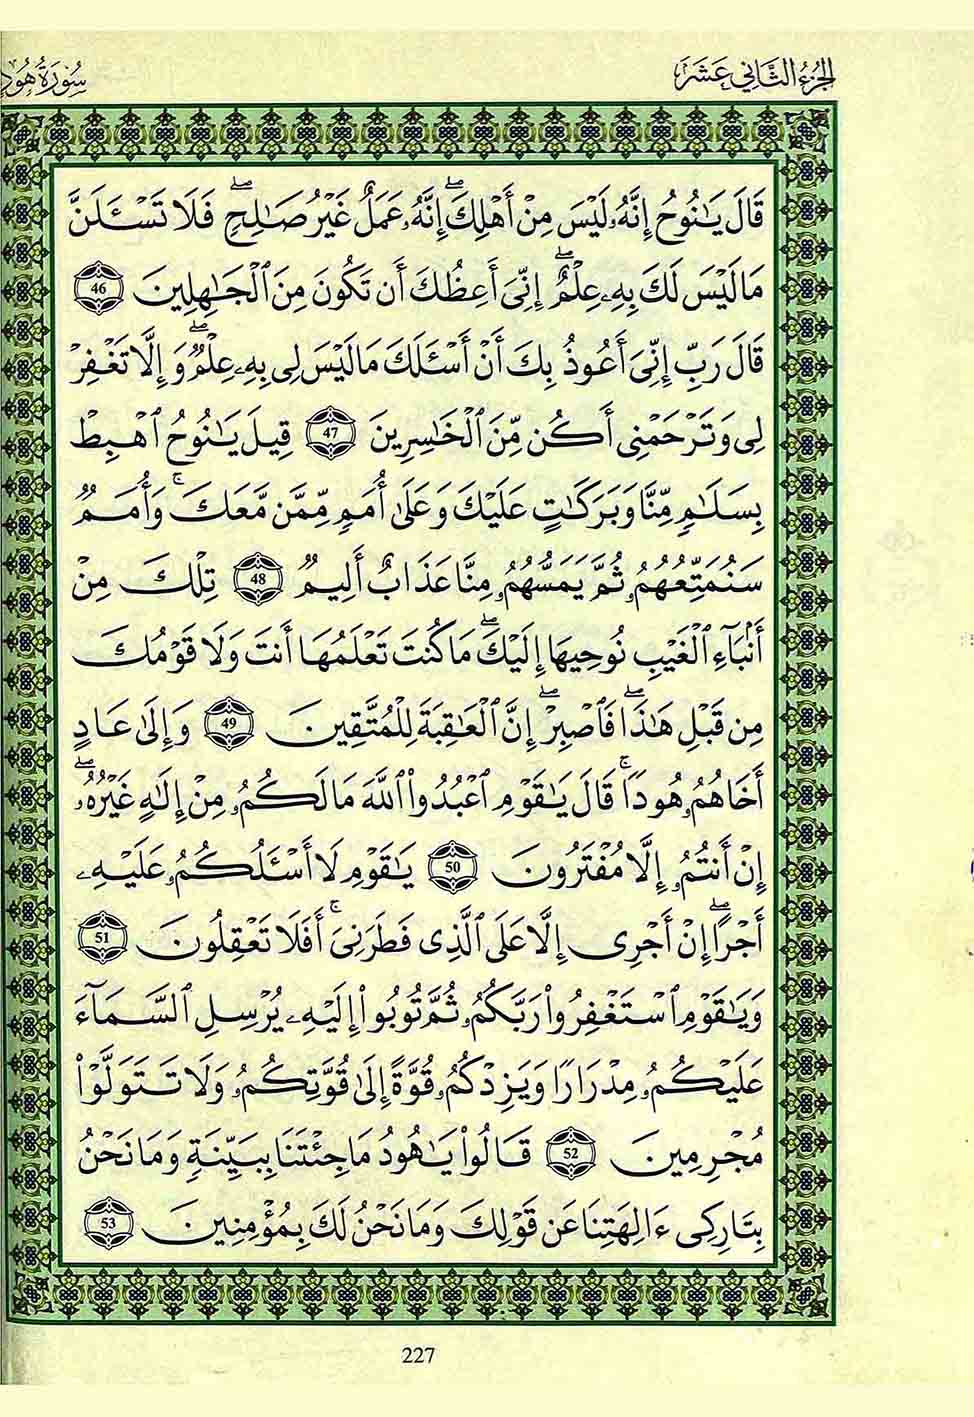 الجزء الثاني عشر
سورة هود
قَالَ يَٰنُوحُ إِنَّهُۥ لَيْسَ مِنْ أَهْلِكَۖ إِنَّهُۥ عَمَلٌ غَيْرُ صَٰلِحٖۖ فَلَا تَسْـَٔلَنَّ
مَا لَيْسَ لَكَ بِهِۦ عِلْمٌۖ إِنِّىَ أَعِظُكَ أَن تَكُونَ مِنَ ٱلْجَٰهِلِينَ 46
قَالَ رَبِّ إِنِّىَ أَعُوذُ بِكَ أَنْ أَسْـَٔلَكَ مَا لَيْسَ لِى بِهِۦ عِلْمٌۖ وَإِلَّا تَغْفِرْ
لِى وَتَرْحَمْنِى أَكُن مِّنَ ٱلْخَٰسِرِينَ 47 قِيلَ يَٰنُوحُ ٱهْبِطْ
بِسَلَٰمٍ مِّنَّا وَبَرَكَٰتٍ عَلَيْكَ وَعَلَىٰ أُمَمٍ مِّمَّن مَّعَكَۚ وَأُمَمٌ
سَنُمَتِّعُهُمُۥ ثُمَّ يَمَسُّهُمُۥ مِنَّا عَذَابٌ أَلِيمٌ 48 تِلْكَ مِنْ
أَنۢبَآءِ ٱلْغَيْبِ نُوحِيهَا إِلَيْكَۖ مَا كُنتَ تَعْلَمُهَا أَنتَ وَلَا قَوْمُكَ
مِن قَبْلِ هَٰذَاۖ فَٱصْبِرْۖ إِنَّ ٱلْعَٰقِبَةَ لِلْمُتَّقِينَ 49 وَإِلَىٰ عَادٍ
أَخَاهُمُۥ هُودًاۚ قَالَ يَٰقَوْمِ ٱعْبُدُوا۟ ٱللَّهَ مَا لَكُمُۥ مِنْ إِلَٰهٍ غَيْرُهُۥۖ
إِنْ أَنتُمُۥ إِلَّا مُفْتَرُونَ 50 يَٰقَوْمِ لَا أَسْـَٔلُكُمُۥ عَلَيْهِۦ
أَجْرًاۖ إِنْ أَجْرِى إِلَّا عَلَى ٱلَّذِى فَطَرَنِىَۚ أَفَلَا تَعْقِلُونَ 51
وَيَٰقَوْمِ ٱسْتَغْفِرُوا۟ رَبَّكُمُۥ ثُمَّ تُوبُوا۟ إِلَيْهِۦ يُرْسِلِ ٱلسَّمَآءَ
عَلَيْكُمُۥ مِدْرَارًا وَيَزِدْكُمُۥ قُوَّةً إِلَىٰ قُوَّتِكُمُۥ وَلَا تَتَوَلَّوْا۟
مُجْرِمِينَ 52 قَالُوا۟ يَٰهُودُ مَا جِئْتَنَا بِبَيِّنَةٍ وَمَا نَحْنُ
بِتَارِكِى ءَالِهَتِنَا عَن قَوْلِكَ وَمَا نَحْنُ لَكَ بِمُؤْمِنِينَ 53
227